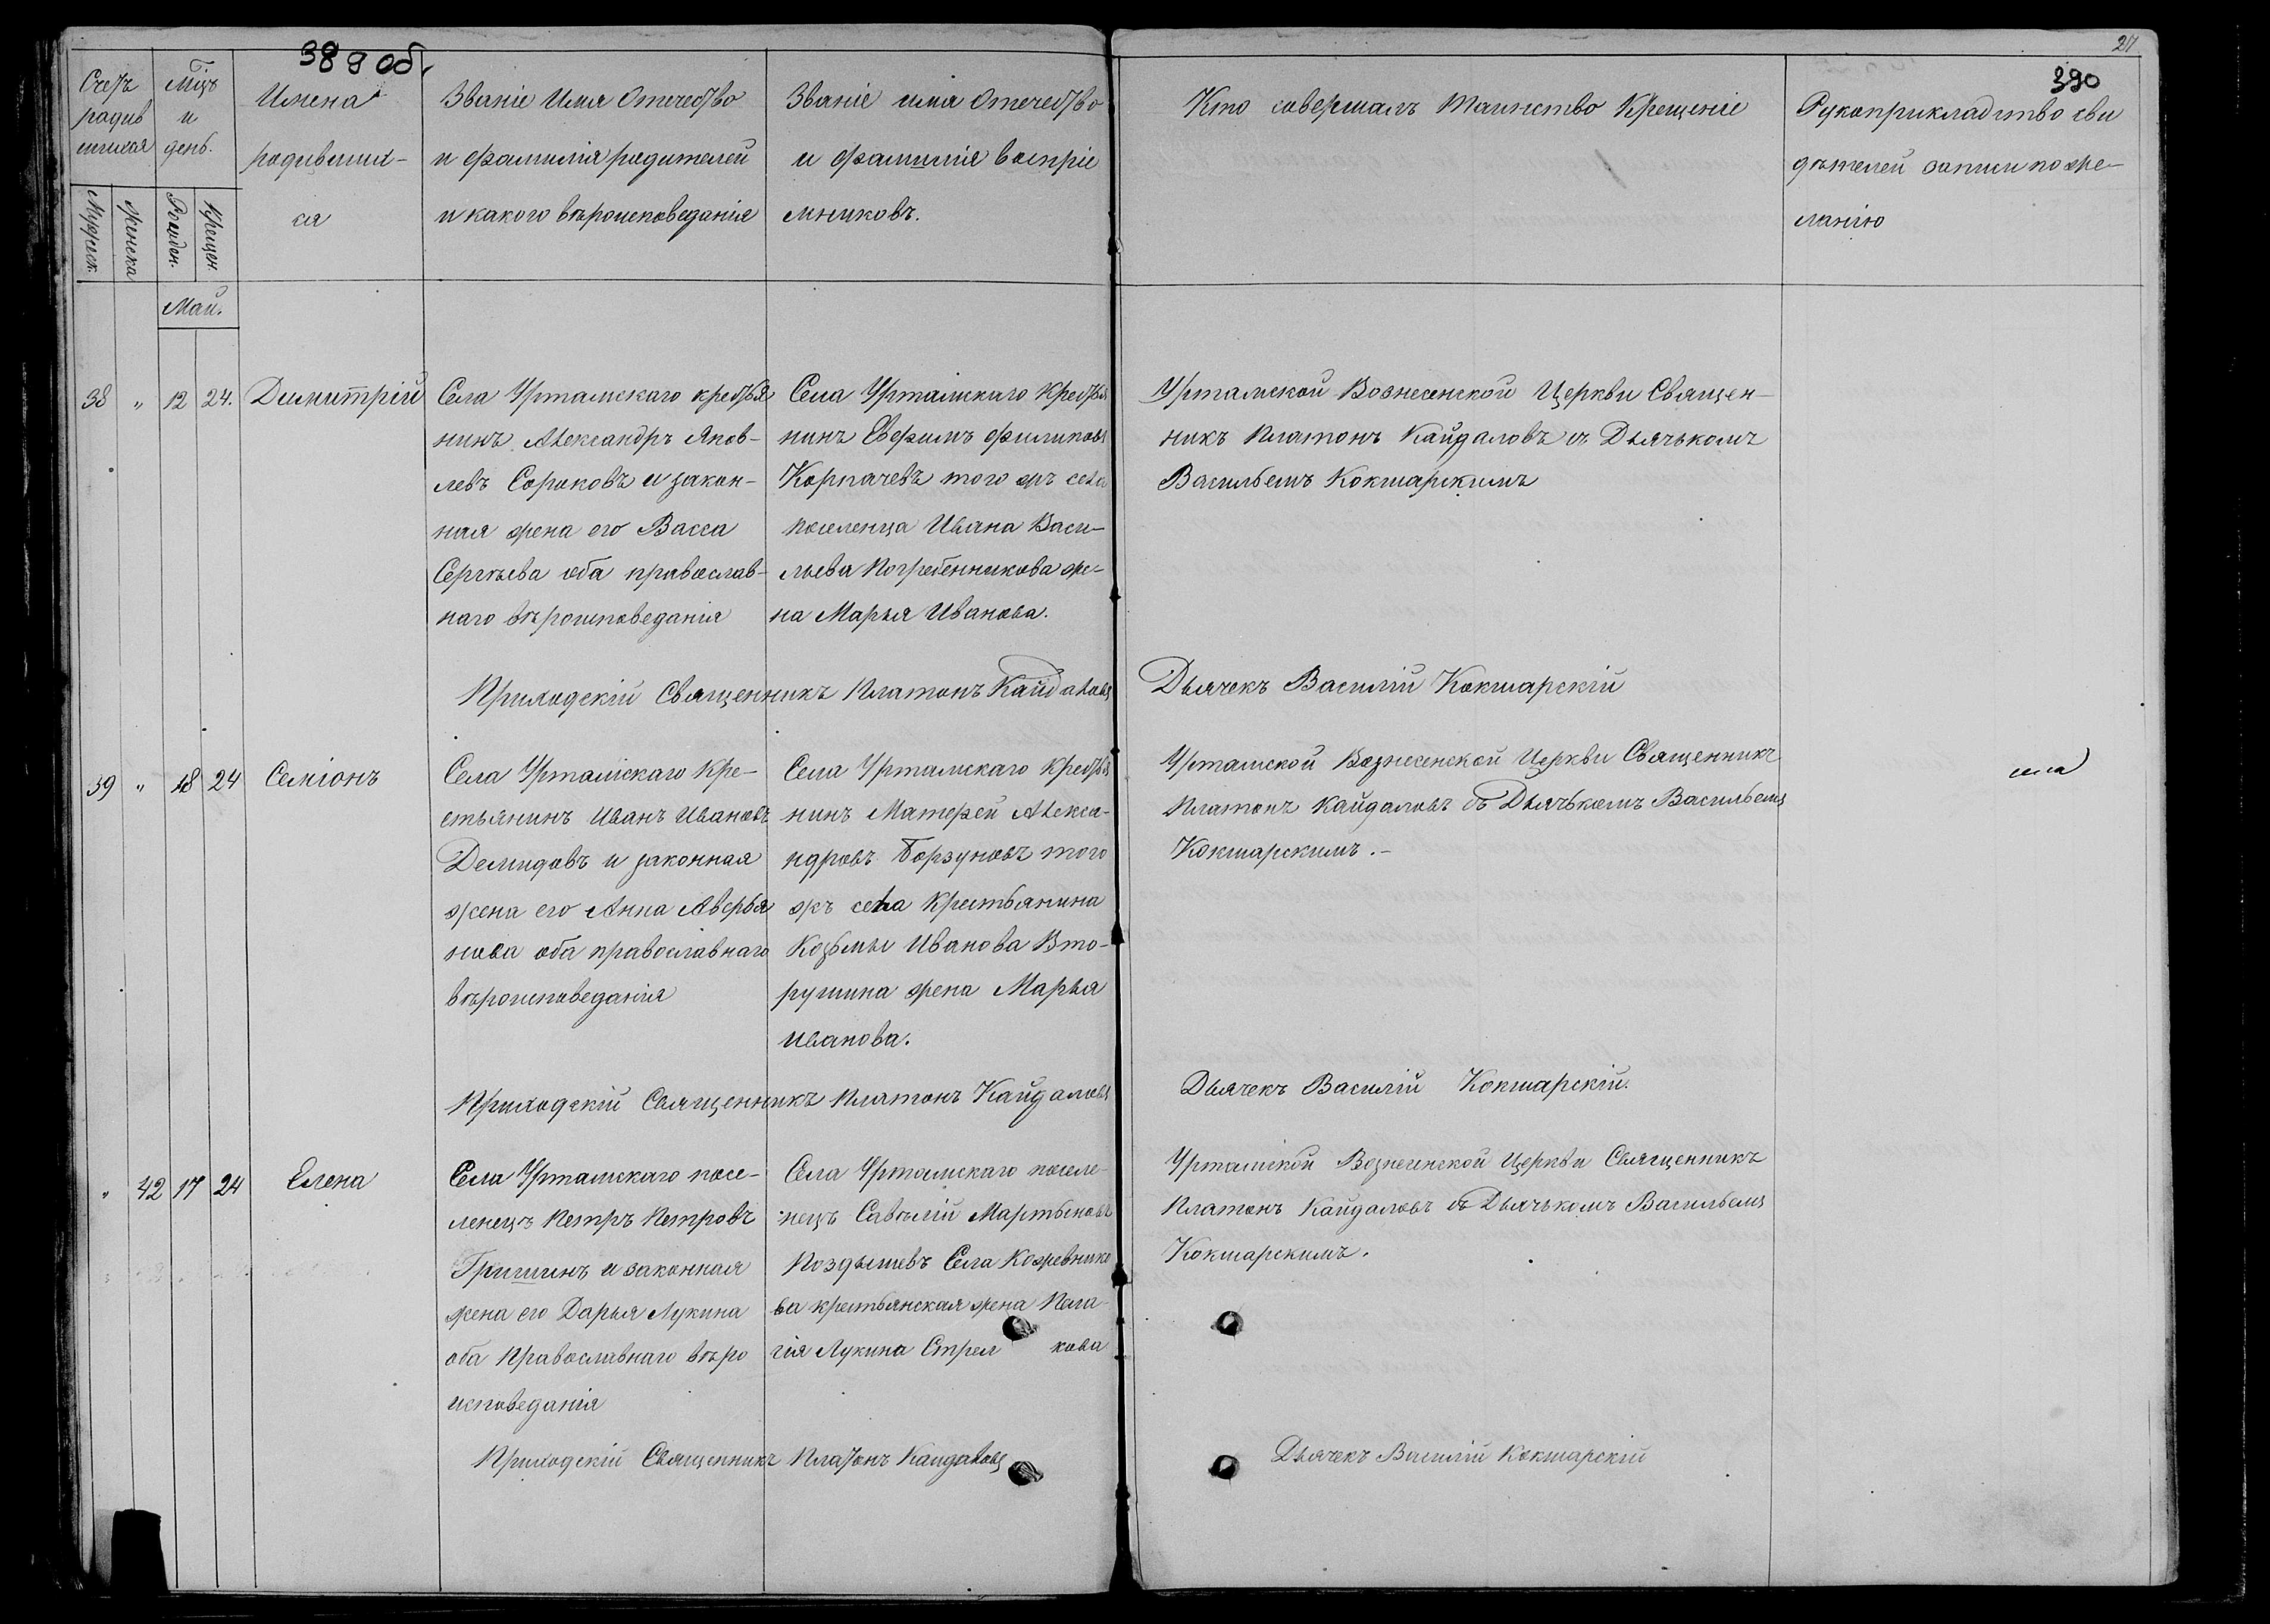 389 об.
27
390
Счетъ
родив
шихся
Мцъ
и
день.
Имена
родивших-
ся
Званіе Имя Отечество
и фамилія родителей
и какого вѣроисповеданія
Званіе имя Отечество
и фамилія воспріе
мниковъ.
Кто совершалъ таинство Крещеніе
Рукоприкладство сви
дѣтелей записи по же-
ланію
Мужеск.
женска
Рожден.
Крещен.
Май.
38 " 12 24. Димитрій
Села Уртамскаго крестья
нинъ Александръ Яков-
левъ Сороковъ и закон-
ная жена его Васса
Сергѣева оба православ-
наго вѣроисповеданія
Села Уртамскаго крестья
нинъ Евфимъ Филиповъ
Корпачевъ того жъ села
поселенца Ивана Васи-
льева Погребенникова же-
на Марья Иванова.
Уртамской Вознесенской Церкви Священ-
никъ Платонъ Кайдаловъ съ Дьячькомъ
Васильемъ Кокшарскимъ
Приходскій Священникъ Платонъ Кайдаловъ
Дьячекъ Василій Кокшарскій
39 " 18 24 Семіонъ
Села Уртамскаго Кре-
стьянинъ Иванъ Ивановъ
Демидовъ и законная
жена его Анна Аверья
нова оба православнаго
вѣроисповеданія
Села Уртамскаго крестья
нинъ Матфей Алекса-
ндровъ Борзуновъ того
жъ села Крестьянина
Козьмы Иванова Вто-
рушина жена Марья
Иванова.
Уртамской Вознесенской Церкви Священникъ
Платонъ Кайдаловъ съ Дьячькомъ Васильемъ
Кокшарскимъ.-
Приходскій Священникъ Платонъ Кайдаловъ
Дьячекъ Василій Кокшарскій.
" 42 17 24 Елена
Села Уртамскаго посе-
ленецъ Петръ Петровъ
Гришинъ и законная
жена его Дарья Лукина
оба Православнаго вѣро
исповеданія
Села Уртамскаго поселе-
нецъ Савѣлій Мартыновъ
Поздышевъ Села Кожевнико
ва крестьянская жена Пела-
гія Лукина Стрел кова
Уртамской Вознесенской Церкви Священникъ
Платонъ Кайдаловъ съ Дьячькомъ Васильемъ
Кокшарскимъ.
Приходскій Священникъ Платонъ Кайдаловъ
Дьячекъ Василій Кокшарскій